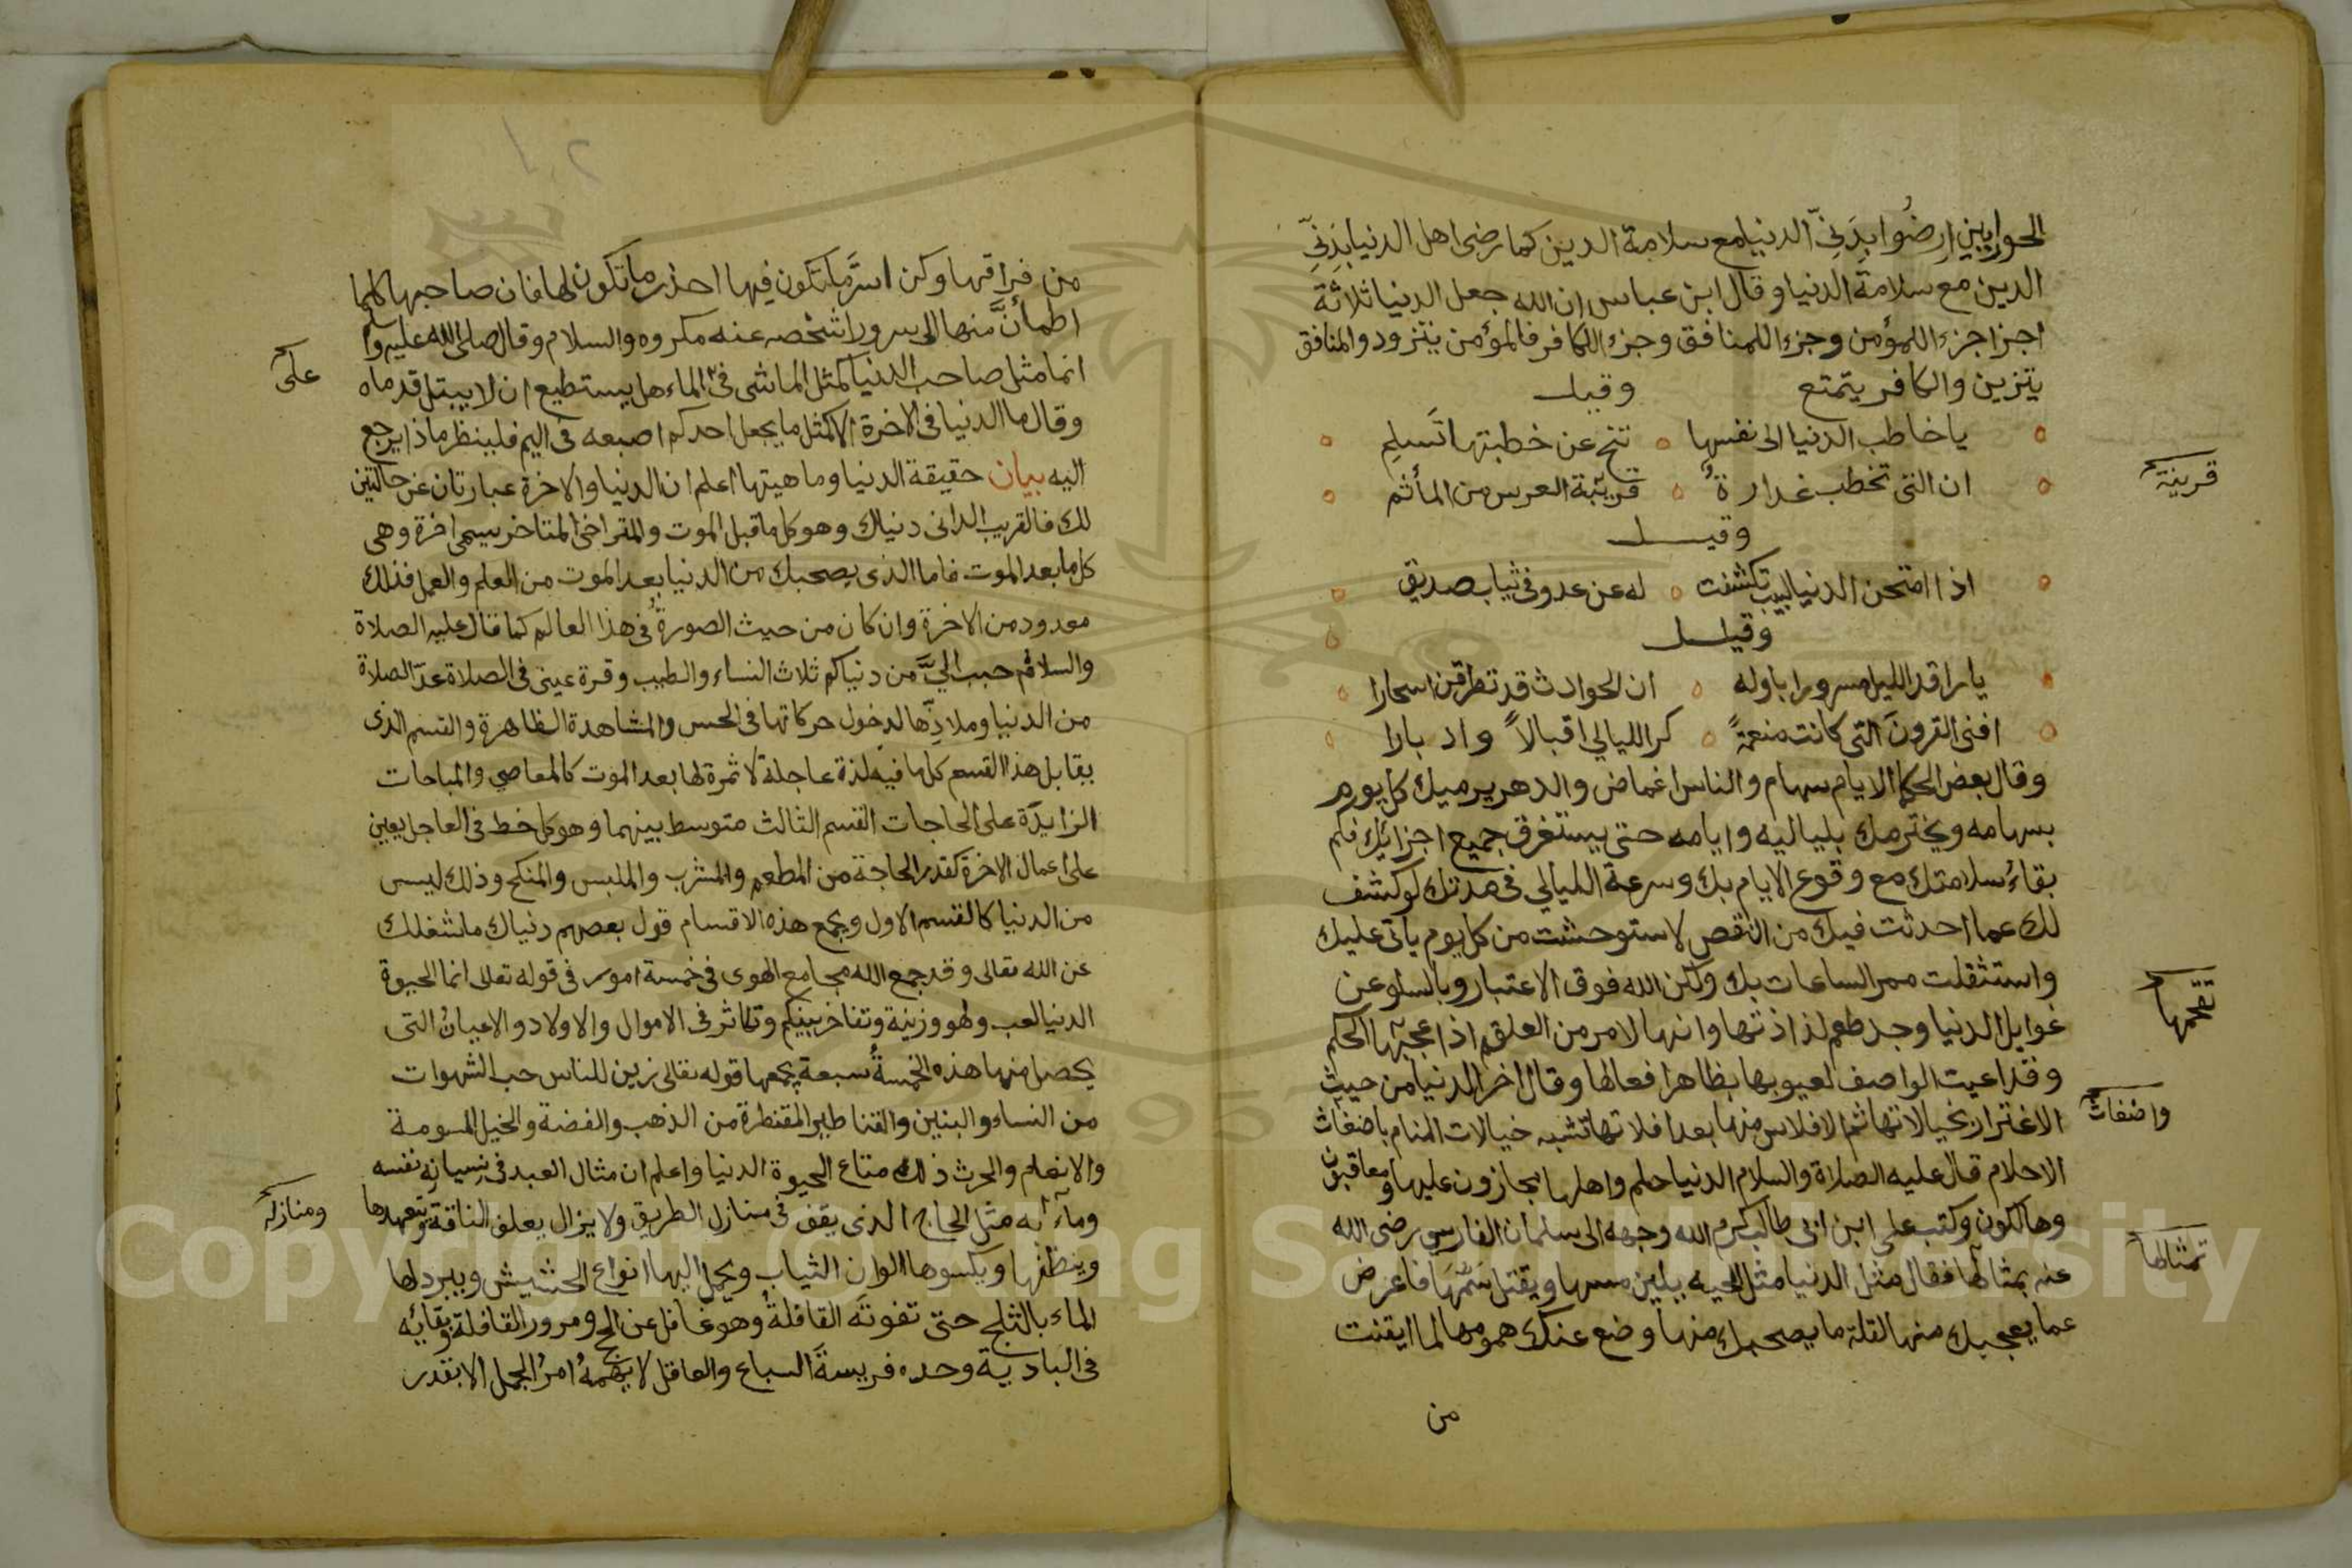 الحواريين ارضُوا بِدَنِيّ الدنيا مع سلامة الدين كما رضى اهل الدنيا بِدَنِيِّ
الدين مع سلامة الدنيا وقال ابن عباس ان الله جعل الدنيا ثلاثة
اجزا جزء اللمؤمن وجزء اللمنافق وجزء اللكافر فالمؤمن يتزود والمنافق
يتزين والكافر يتمتع وقيل
يا خاطب الدنيا الى نفسها تنح عن خطبتها تَسلِم
ان التى تخطب غدارةٌ قريبة العرس من المأثم
قرينة
وقيل
اذا امتحن الدنيا لبيب تكشفت له عن عدو فى ثياب صديق
وقيل
يا راقد الليل مسرورا باوله ان الحوادث قد تطرقن اسحارا
افنى القرونَ التى كانت منعمةً كر الليالي اقبالاً وادبارا
وقال بعض الحكما الايام سهام والناس اغماض والدهر يرميك كل يوم
بسهامه ويخترمك بلياليه وايامه حتى يستغرق جميع اجزائك فكم
بقاءُ سلامتك مع وقوع الايام بك وسرعة الليالي فى مدتك لو كشف
لك عما احدثت فيك من النقص لاستوحشت من كل يوم ياتى عليك
واستثقلت ممر الساعات بك ولكن الله فوق الاعتبار وبالسلو عن
غوايل الدنيا وجد طعم لذاذتها وانها لامر من العلقم اذا عجبها الحكم
وقد اعيت الواصف لعيوبها بظاهر افعالها وقال اخر الدنيا من حيث
الاغترار بخيالاتها ثم الافلاس منها بعد افلاتها تشبه خيالات المنام باضغاث
واضغاث
الاحلام قال عليه الصلاة والسلام الدنيا حلم واهلها مجازون عليها ومعاقبون
وهالكون وكتب على ابن ابى طالب كرم الله وجهه الى سلمان الفارسي رضى الله
عنه بمثالها فقال مثل الدنيا مثل الحيه يلين مسها ويقتل سَمُّهَا فاعرض
تمثالها
عما يعجبك منها لقلة ما يصحبك منها وضع عنك همومها لما ايقنت
من
من فراقها وكن اسرَّ ما تكون فيها احذر ما تكون لها فان صاحبها كلما
اطمأنَّ منها الى سرور اشخصه عنه مكروه والسلام وقال صلى الله عليه وسلم
انما مثل صاحب الدنيا كمثل الماشى فى الماء هل يستطيع ان لا يبتل قدماه
على
وقال ما الدنيا فى الاخرة الا كمثل ما يجعل احدكم اصبعه فى اليم فلينظر ماذا يرجع
اليه بيان حقيقة الدنيا وماهيتها اعلم ان الدنيا والاخرة عبارتان عن حالتين
لك فالقريب الدانى دنياك وهو كل ما قبل الموت والمتراخى المتاخر يسمى اخرة وهى
كل ما بعد الموت فاما الذى يصحبك من الدنيا بعد الموت من العلم والعمل فذلك
معدود من الاخرة وان كان من حيث الصورةُ فى هذا العالم كما قال عليه الصلاة
والسلام حبب اليَّ من دنياكم ثلاث النساء والطيب وقرة عينى فى الصلاة عدّ الصلاة
من الدنيا وملاذِّها لدخول حركاتها فى الحس والمشاهدة الظاهرة والقسم الذى
يقابل هذا القسم كل ما فيه لذة عاجلة لا ثمرة لها بعد الموت كالمعاصي والمباحات
الزايدة على الحاجات القسم الثالث متوسط بينهما وهو كل خط فى العاجل يعين
على اعمال الاخرة كقدر الحاجة من المطعم والمشرب والملبس والمنكح وذلك ليس
من الدنيا كالقسم الاول ويجمع هذه الاقسام قول بعضهم دنياك ما شغلك
عن الله تعالى وقد جمع الله مجامع الهوى فى خمسة امور فى قوله تعلى انما الحيوة
الدنيا لعب ولهو وزينة وتفاخر بينكم وتكاثر فى الاموال والاولاد والاعيانُ التى
يحصل منها هذه الخمسةُ سبعة يجمعها قوله تعالى زين للناس حب الشهوات
من النساء والبنين والقناطير المقنطرة من الذهب والفضة والخيل المسومة
والانعام والحرث ذلك متاع الحيوة الدنيا واعلم ان مثال العبد فى نِسيانِه نفسه
ومآبه مثل الحاج الذى يقف فى منازل الطريق ولا يزال يعلف الناقة ويتعهدها
ومنازله
وينظفها ويكسوها الوان الثياب ويحمل اليها انواع الحشيش ويبرد لها
الماء بالثلج حتى تفوتَه القافلةُ وهو غافل عن الحج ومرور القافلة وبقائه
فى البادية وحده فريسةَ السباع والعاقل لا يهمهُ امرُ الجمل الا بقدر
Copyright © King Saud University
1957